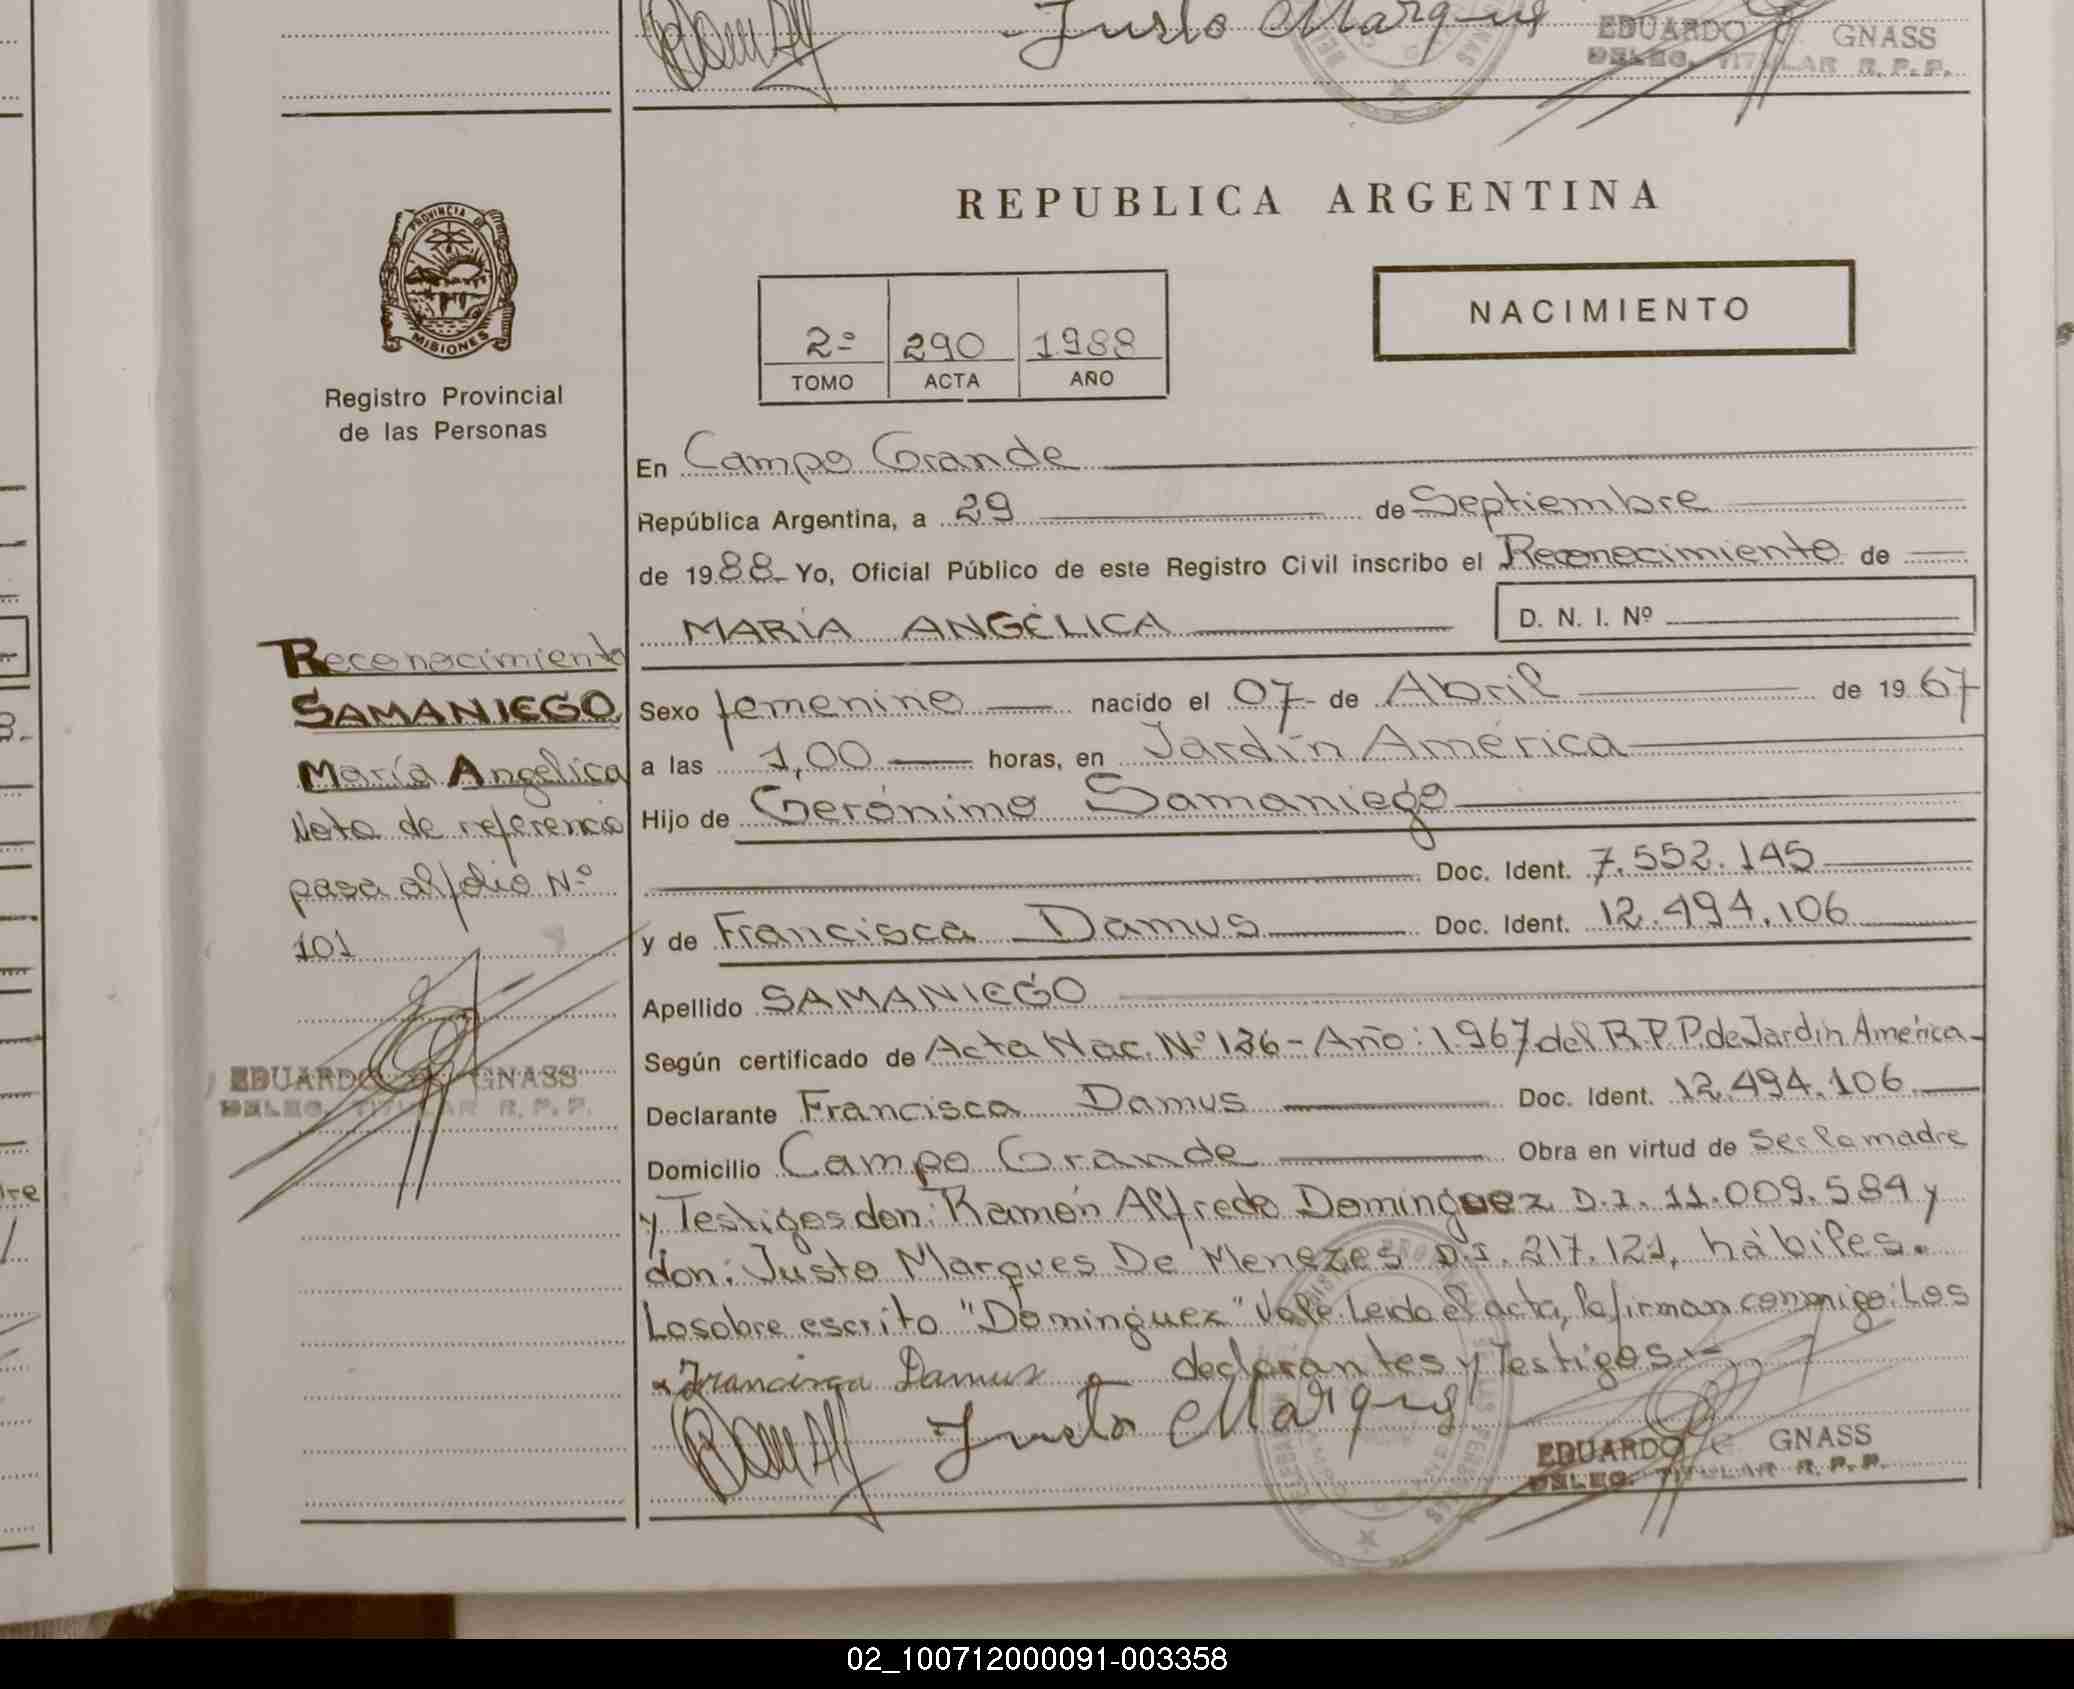 Justo Marques
EDUARDO C. GNASS
DELEG. TITULAR R. P. P.
PROVINCIA DE
MISIONES
Registro Provincial
de las Personas
REPUBLICA ARGENTINA
2º 290 1988
TOMO ACTA AÑO
NACIMIENTO
En Campo Grande
República Argentina, a 29 de Septiembre
de 1988 Yo, Oficial Público de este Registro Civil inscribo el Reconocimiento de
MARÍA ANGÉLICA
D. N. I. Nº
Sexo femenino nacido el 07 de Abril de 1967
a las 1,00 horas, en Jardín América
Hijo de Gerónimo Samaniego
Doc. Ident. 7.552.145
y de Francisca Damus Doc. Ident. 12.494.106
Apellido SAMANIEGO
Según certificado de Acta Nac. Nº 136 - Año: 1967 del R.P.P. de Jardín América-
Declarante Francisca Damus Doc. Ident. 12.494.106
Domicilio Campo Grande Obra en virtud de Ser la madre
y Testigos don: Ramón Alfredo Dominguez D.I. 11.009.584 y
don: Justo Marques De Menezes D.I. 217.121, hábiles.
Lo sobre escrito "Dominguez" Vale. Leida el acta, la firman conmigo: Los
declarantes y Testigos.-
Francisca Damus
Justo Marques
EDUARDO C. GNASS
DELEG. TITULAR R. P. P.
Reconocimiento
SAMANIEGO
María Angelica
Nota de referencia
pasa al folio Nº
101
EDUARDO C. GNASS
DELEG. TITULAR R. P. P.
02_100712000091-003358